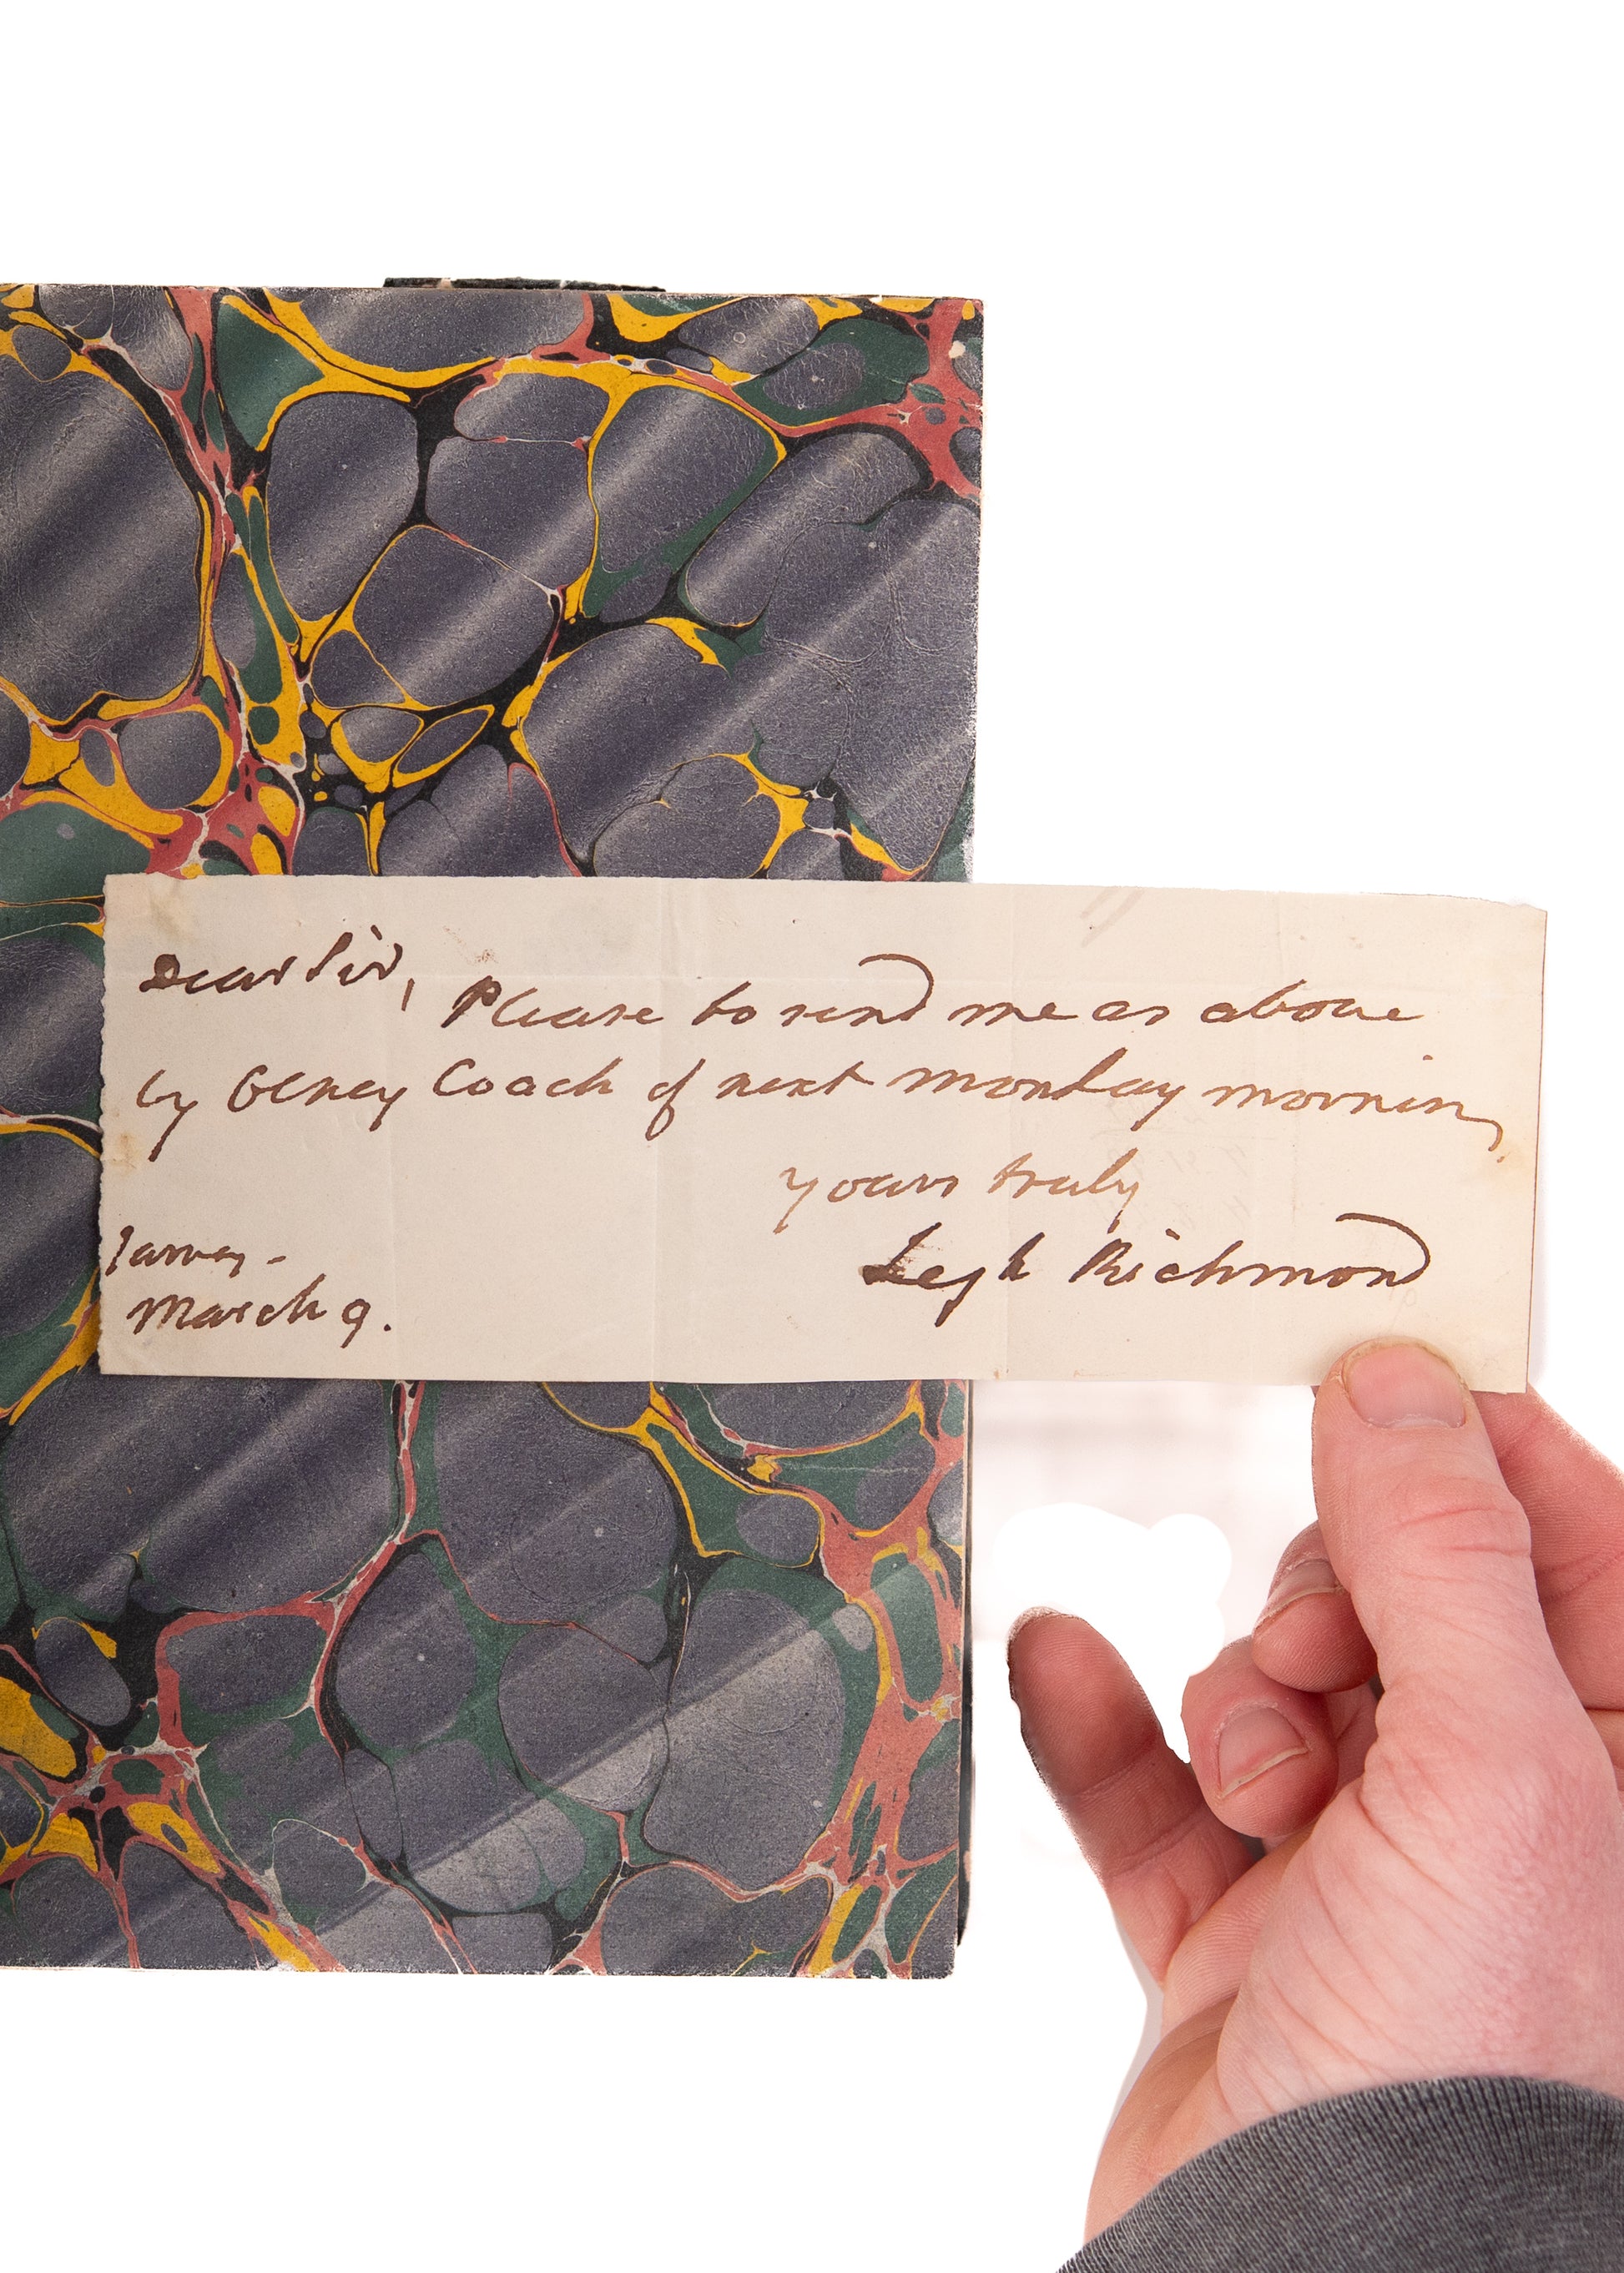 Dear Sir,
Please to send me as above
by Olney Coach of next Monday morning
yours truly
Legh Richmond
Turvey -
March 9.